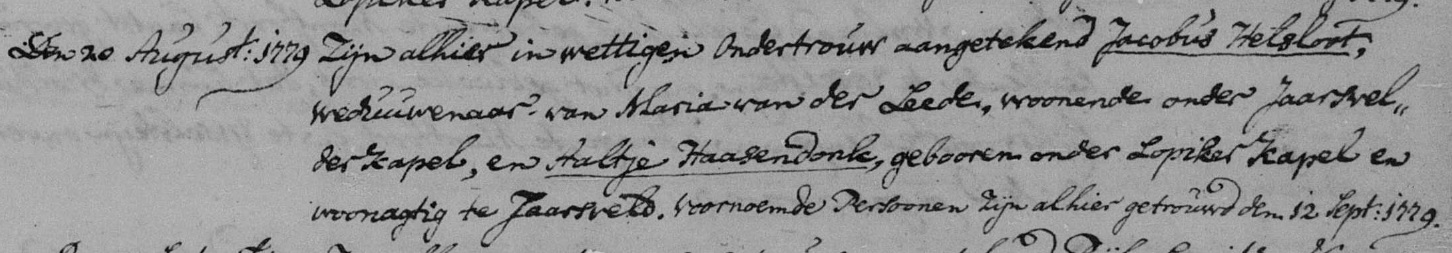 Lopiker Kapel.
Den 20 August: 1779 Zijn alhier in wettigen Ondertrouw aangetekend Jacobus Helsloot,
weduuwenaar van Maria van der Leede, woonende onder Jaarsvel„
der Kapel, en Aaltje Haasendonk, gebooren onder Lopiker Kapel en
woonagtig te Jaarsveld. Voornoemde Persoonen Zijn alhier getrouwd den 12 Sept: 1779.